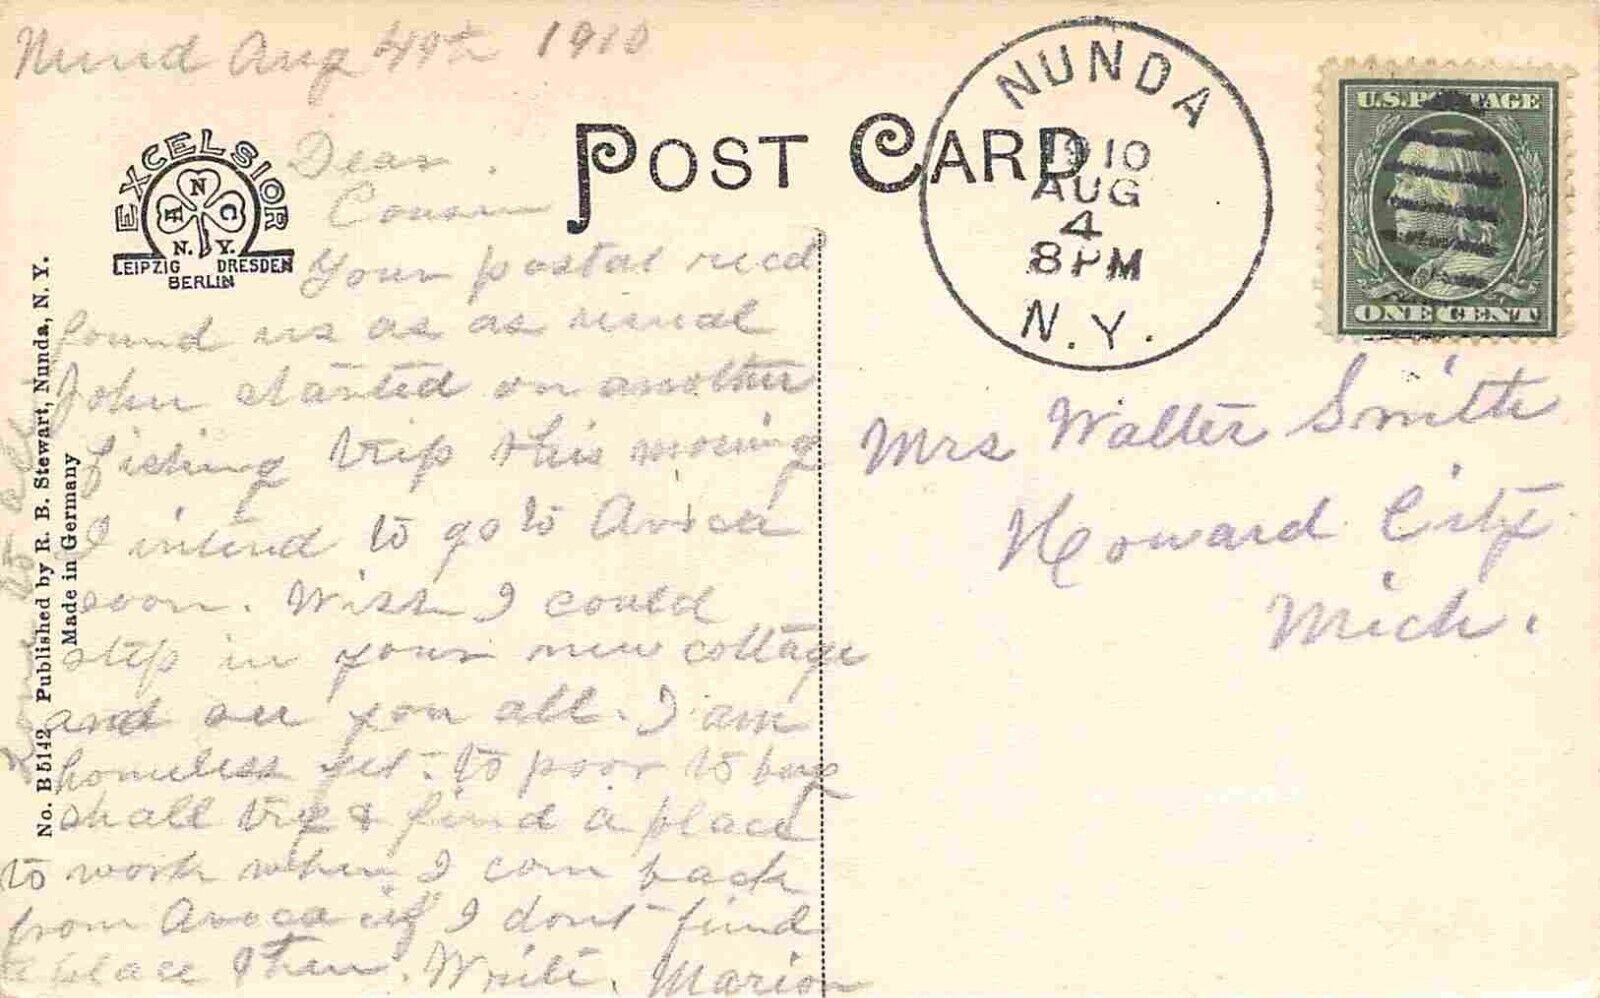 Nund Aug 4th 1910
Dear
Cousin
Your postal recd
found us as as usual
John started on another
fishing trip this morning
I intend to go to Avoca
soon. Wish I could
step in your new cottage
and see you all. I am
homeless yet - to poor to buy
shall try & find a place
to work when I com back
from Avoca if I dont find
a place then. Write. Marion
Love to all
EXCELSIOR
N
A C
N. Y.
LEIPZIG DRESDEN
BERLIN
No. B5142 Published by R. B. Stewart, Nunda, N. Y.
Made in Germany
POST CARD
NUNDA
1910
AUG
4
8PM
N.Y.
U.S. POSTAGE
ONE CENT
Mrs Walter Smith
Howard City
Mich.